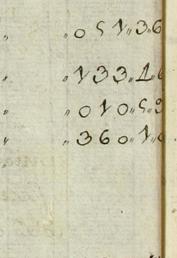 " " 0 5 1 " 3.6
" " 1 3 3 " 1.6
" " 0 1 0 " 5.
" " 3 6 0 " 1.